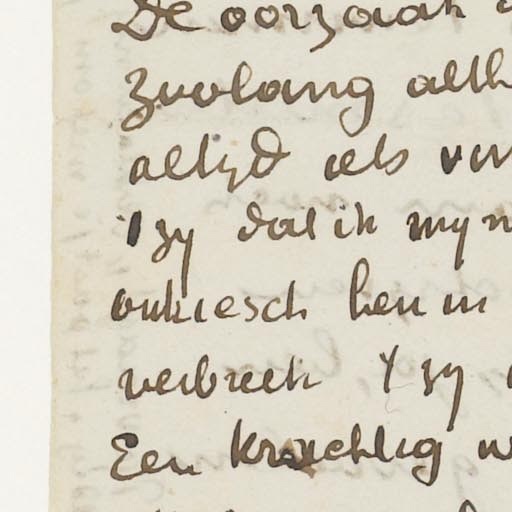 De oorzaak
zoolang alth
altyd als
'tzy dat ik myn
onkiesch ben in
verbreek 't zy
Een krachtig